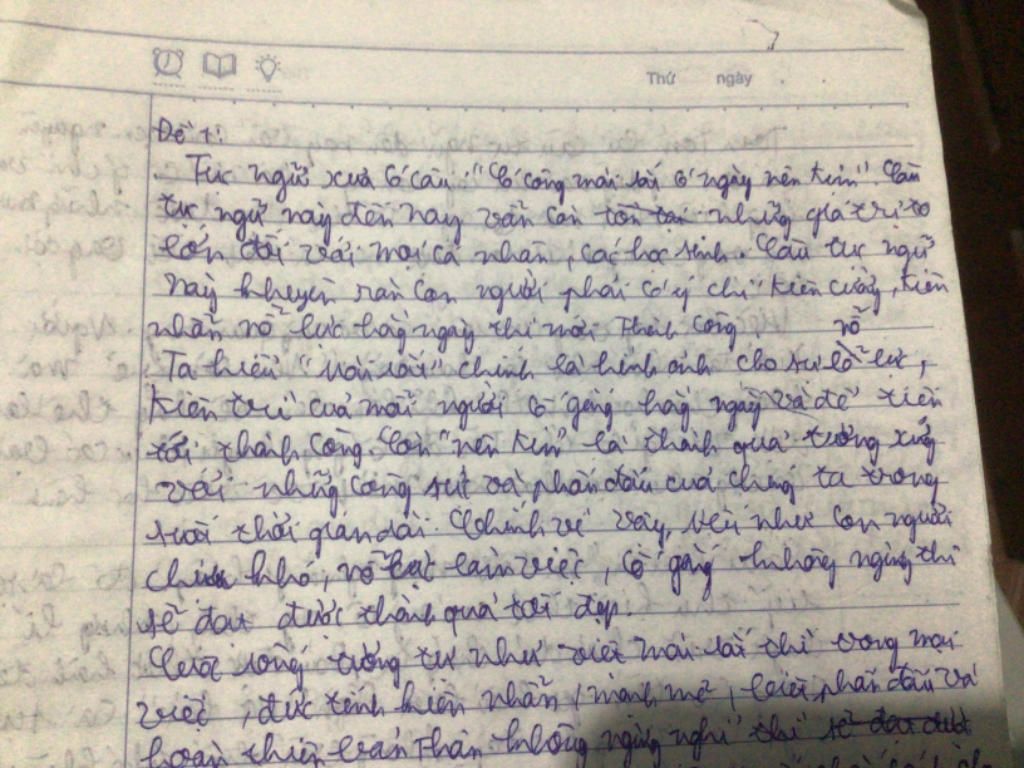 Thứ ngày
Đề 1:
. Tục ngữ xưa có câu: "Có công mài sắt có ngày nên kim". Câu
tục ngữ này đến nay vẫn còn tồn tại những giá trị to
lớn đối với mọi cá nhân, các học sinh. Câu tục ngữ
này khuyên răn con người phải có ý chí kiên cường, kiên
nhẫn nỗ lực hằng ngày thì mới thành công
nỗ
Ta hiểu "mài sắt" chính là hình ảnh cho sự lỗ lực,
kiên trì của mỗi người cố gắng hằng ngày và để tiến
tới thành công. Còn "nên kim" là thành quả tương xứng
với những công sức và phấn đấu của chúng ta trong
suốt thời gian dài. Chính vì vậy, nếu như con người
chịu khó, nỗ lực làm việc, cố gắng không ngừng thì
sẽ đạt được thành quả tốt đẹp.
Cuộc sống tương tự như việc mài sắt thì trong mọi
việc, đức tính kiên nhẫn, mạnh mẽ, biết phấn đấu và
hoàn thiện bản thân không ngừng nghỉ thì sẽ đạt được